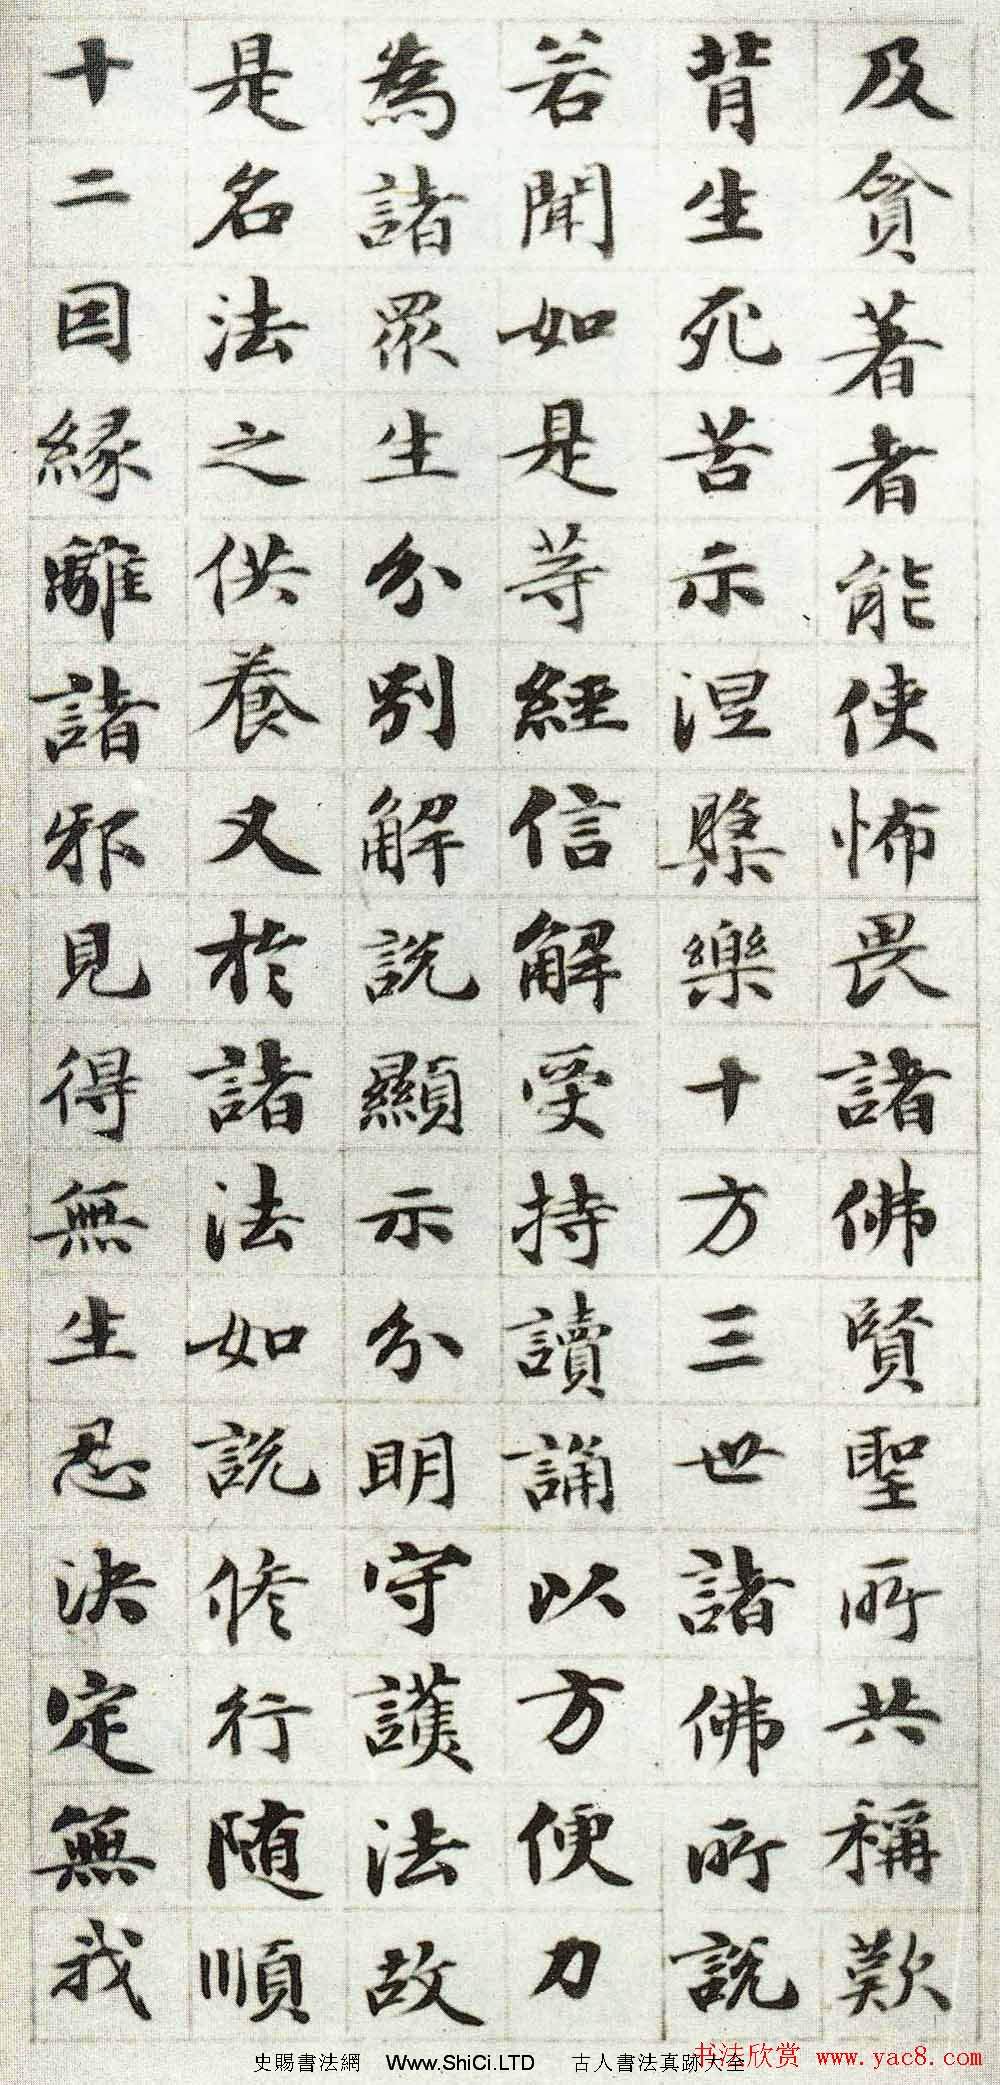 及貪著者能使怖畏諸佛賢聖所共稱歎
背生死苦示涅槃樂十方三世諸佛所說
若聞如是等經信解受持讀誦以方便力
為諸眾生分別解說顯示分明守護法故
是名法之供養又於諸法如說修行随順
十二因緣離諸邪見得無生忍決定無我
史賜書法網 Www.ShiCi.LTD 古人書法真跡大全
书法欣赏 www.yac8.com